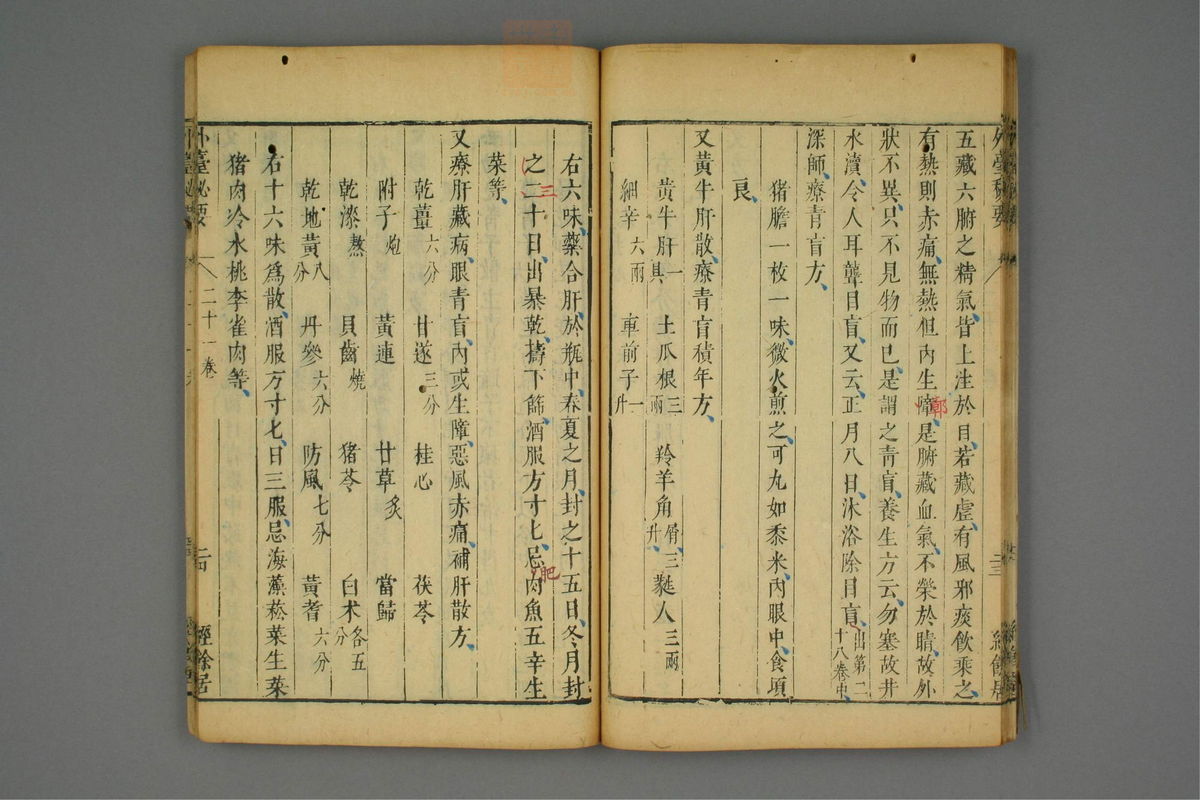 五藏六腑之精氣皆上注於目若藏虛有風邪痰飲乘之
有熱則赤痛無熱但內生障是腑藏血氣不榮於睛故外
鄣
狀不異只不見物而已是謂之青盲養生方云勿塞故井
水瀆令人耳聾目盲又云正月八日沐浴除目盲出第二十八卷中
深師療青盲方
猪膽一枚一味微火煎之可丸如黍米內眼中食頃
良
又黃牛肝散療青盲積年方
黃牛肝一具 土瓜根三兩 羚羊角屑三升 蕤人三兩
細辛六兩 車前子一升
右六味藥合肝於瓶中春夏之月封之十五日冬月封
之二十日出暴乾擣下篩酒服方寸匕忌肉魚五辛生
三
肥
菜等
又療肝藏病眼青盲內或生障惡風赤痛補肝散方
乾薑六分 甘遂三分 桂心 茯苓
附子炮 黃連 甘草炙 當歸
乾漆熬 貝齒燒 猪苓 白术各五分
乾地黃八分 丹參六分 防風七分 黃耆六分
右十六味為散酒服方寸匕日三服忌海藻菘菜生菜
猪肉冷水桃李雀肉等
外臺秘要 二十一卷 二四 經餘居